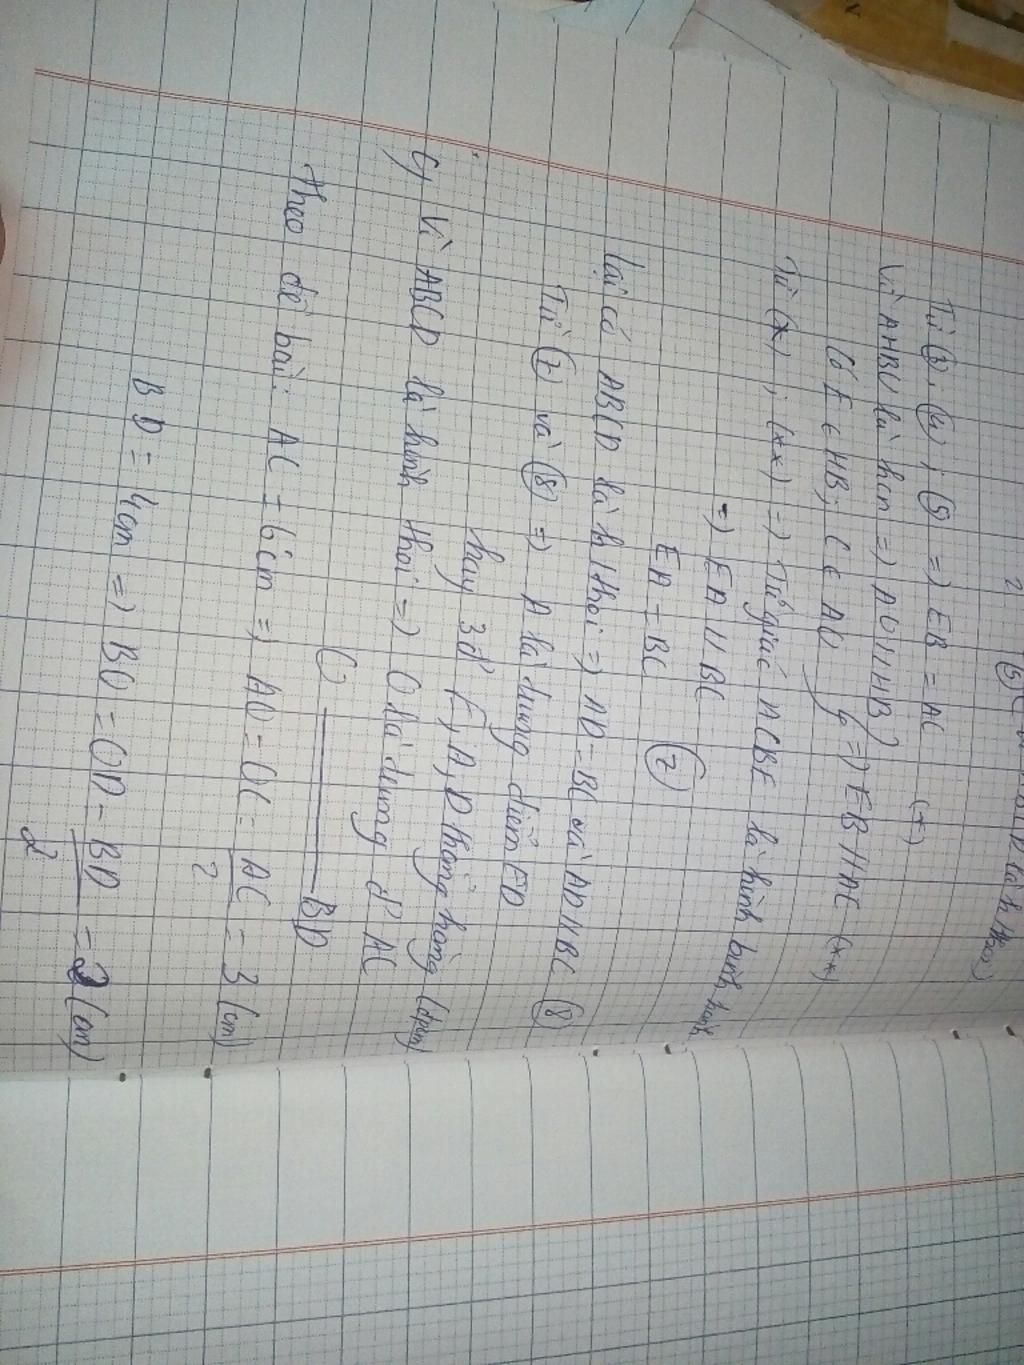 2 (5)
ABCD là h thoi)
Từ (3), (4), (5) => EB = AC (*)
Vì AHBO là hcn => AO // HB
Có E ∈ HB; C ∈ AO => EB // AC (**)
Từ (*), (**) => Tứ giác ACBE là hình bình hành
=> EA // BC
EA = BC (7)
Lại có ABCD là h thoi => AD = BC và AD // BC (8)
Từ (7) và (8) => A là trung điểm ED
hay 3đ' E, A, D thẳng hàng (đpcm)
c, Vì ABCD là hình thoi => O là trung đ' AC
O BD
theo đề bài: AC = 6cm => AO = OC = AC/2 = 3 (cm)
BD = 4cm => BO = OD = BD/2 = 2 (cm)